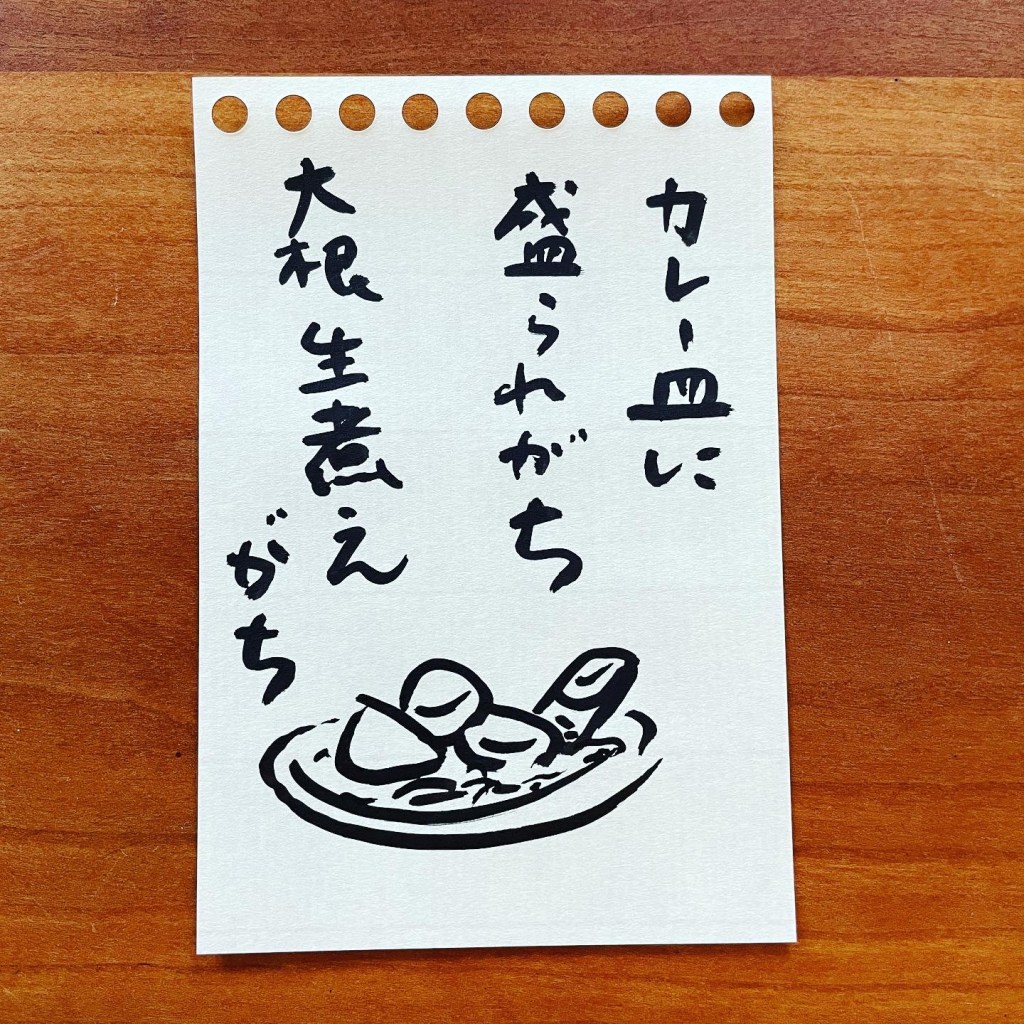 カレー皿に
盛られがち
大根生煮え
がち